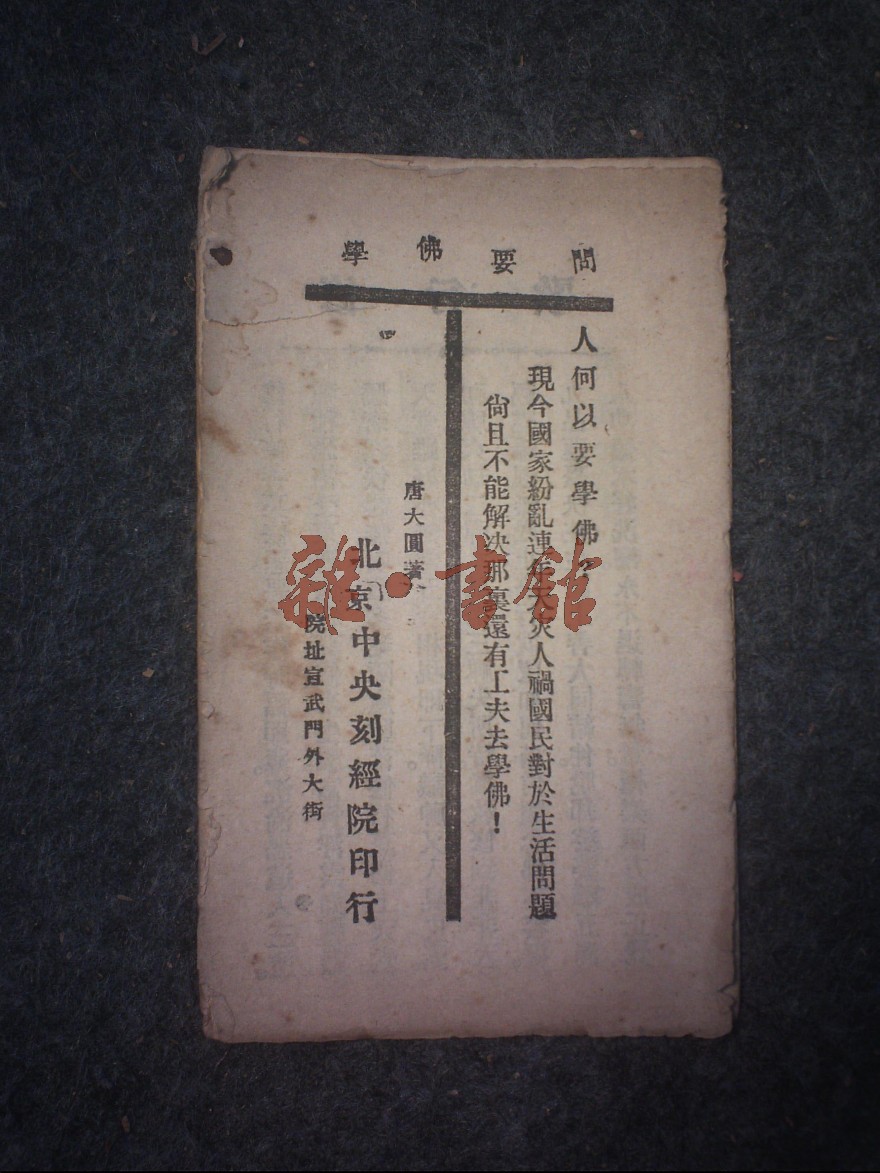 問要佛學
人何以要學佛？
現今國家紛亂連年天災人禍國民對於生活問題
尙且不能解决那裏還有工夫去學佛！
唐大圓著
北京中央刻經院印行
院址宣武門外大街
雜·書館